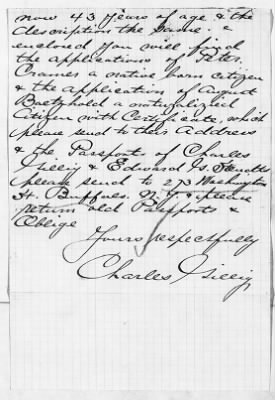 now 43 years of age & the
description the same. &
enclosed you will find
the applications of Peter
Cramer a native born citizen
& the application of August
Baetzhold a naturalized
Citizen with Certificate, which
please send to their Address
& the Passports of Charles
Gillig & Edward G.
please send to 273 Washington
St. Buffalo. N.Y. & please
return old Passports &
Oblige
Yours respectfully
Charles Gillig